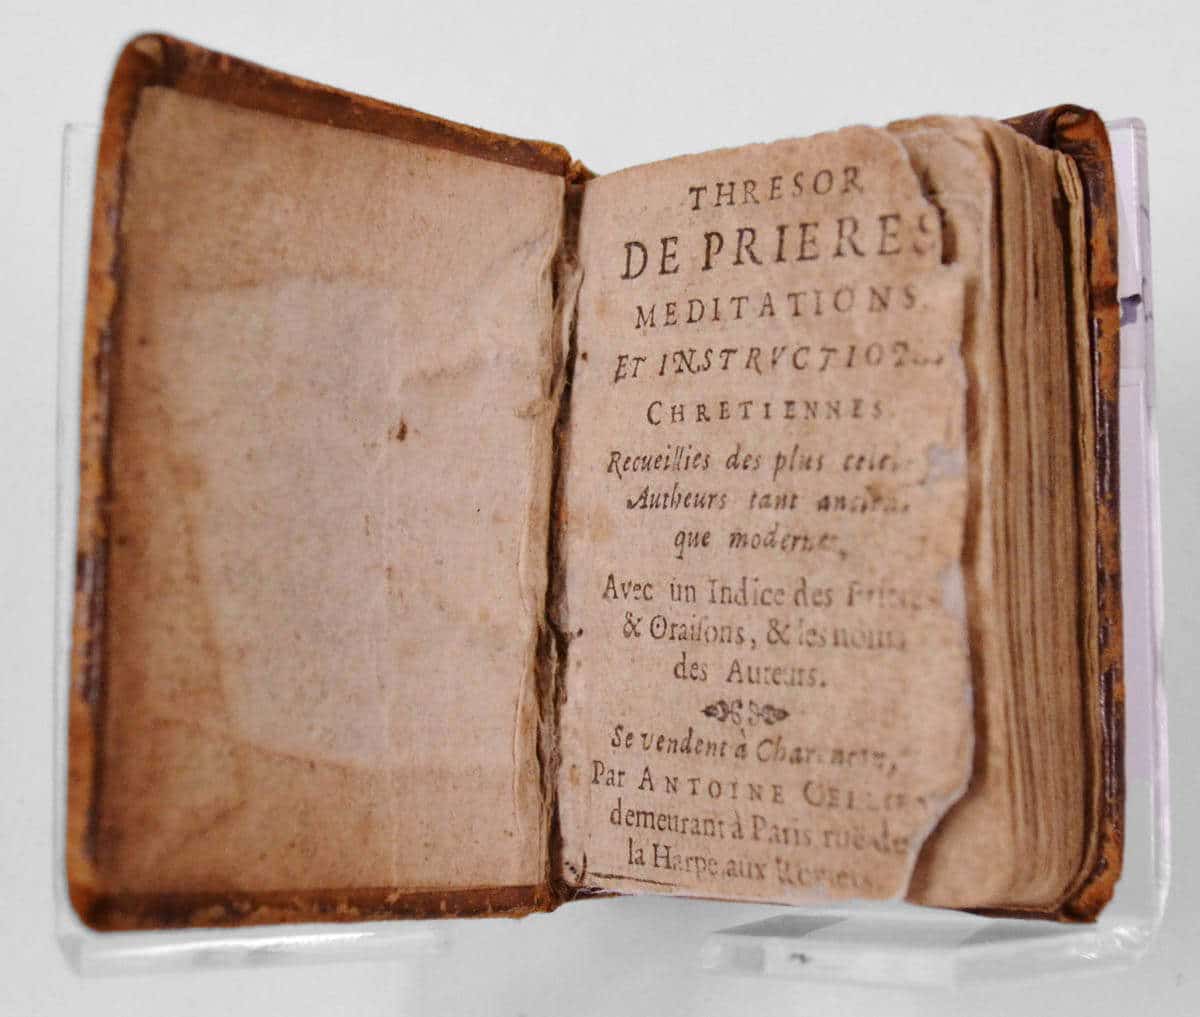 THRESOR
DE PRIERES
MEDITATIONS
ET INSTRVCTIONS
CHRETIENNES.
Recueillies des plus celebres
Autheurs tant anciens
que modernes,
Avec un Indice des Prieres
& Oraisons, & les noms
des Auteurs.
Se vendent à Charenton,
Par ANTOINE CELLIER
demeurant à Paris ruë de
la Harpe, aux